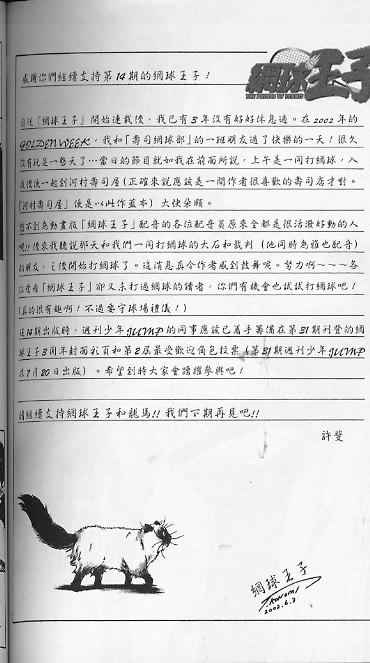 網球王子
THE PRINCE OF TENNIS
感謝你們繼續支持第14期的網球王子!
「網球王子」開始連載後,我已有3年沒有好好休息過。在2002年的
GOLDEN WEEK,我和「壽司網球部」的一班朋友過了快樂的一天!很久
沒有玩足一整天了…當日的節目就如我在前面所說,上午是一同打網球,入
夜後便一起到河村壽司屋(正確來說應該是一間作者很喜歡的壽司店才對。
「河村壽司屋」便是以此作藍本)大快朵頤。
想不到為動畫版「網球王子」配音的各位配音員原來全都是很活潑好動的人
呢!!後來我聽說那天和我們一同打網球的大石和裁判(他同時為雅也配音)
的朋友,之後開始打網球了。這消息真令作者感到鼓舞呢。努力啊~~~各
位看過「網球王子」卻又未打過網球的讀者,你們有機會也試試打網球吧!
(真的很有趣啊!不過要守球場禮儀!)
這14期出版時,週刊少年JUMP的同事應該已着手籌備在第31期刊登的網
球王子3周年封面彩頁和第2屆最受歡迎角色投票(第31期週刊少年JUMP
在7月20日出版)。希望到時大家會踴躍參與吧!
請繼續支持網球王子和龍馬!!我們下期再見吧!!
許斐
網球王子
2002.6.3